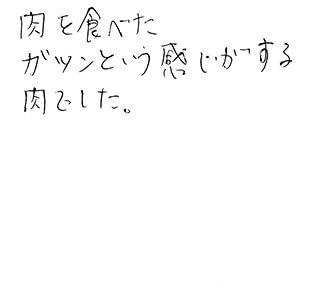 肉を食べた
ガツンという感じがする
肉でした。